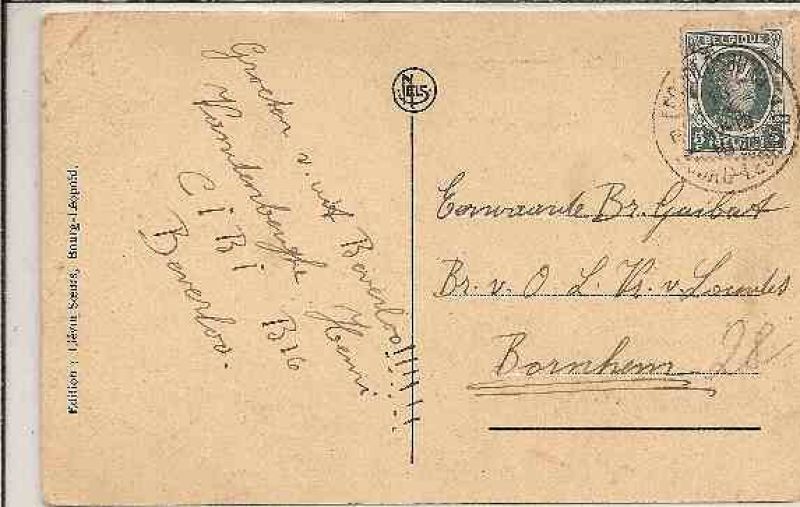 Groeten v. uit Beverloo!!!!!!
Vandenberghe Henri
C I B I B16
Beverloo.
NELS
BELGIQUE
5 5
Eerwaarde Br. Guibert
Br. v. O. L. Vr. v. Lourdes
Bornhem 28
Edition : Liévin Sœurs, Bourg-Léopold.